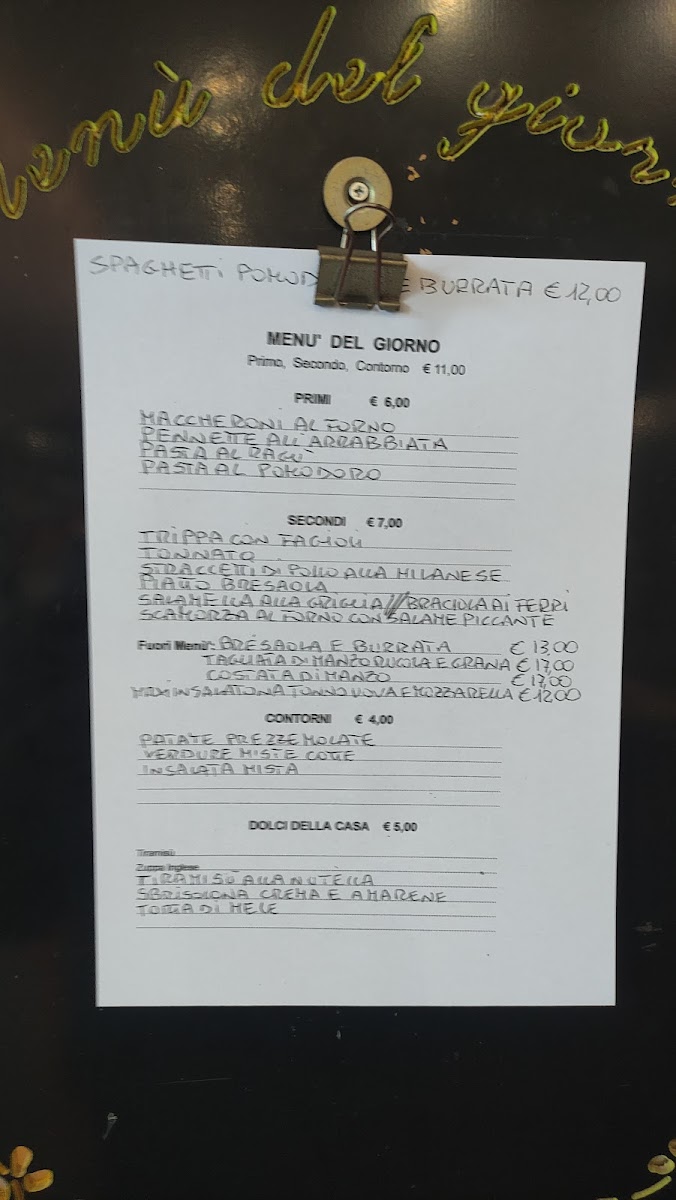 menù del gior
SPAGHETTI POMOD E BURRATA € 12,00
MENU' DEL GIORNO
Primo, Secondo, Contorno € 11,00
PRIMI € 6,00
MACCHERONI AL FORNO
PENNETTE ALL'ARRABBIATA
PASTA AL RAGÙ
PASTA AL POMODORO
SECONDI € 7,00
TRIPPA CON FAGIOLI
TONNATO
STRACCETTI DI POLLO ALLA MILANESE
PIATTO BRESAOLA
SALAMELLA ALLA GRIGLIA // BRACIOLA AI FERRI
SCAMORZA AL FORNO CON SALAME PICCANTE
Fuori Menu': BRESAOLA E BURRATA € 13,00
TAGLIATA DI MANZO RUCOLA E GRANA € 17,00
COSTATA DI MANZO € 17,00
INSALATONA TONNO UOVA E MOZZARELLA € 12,00
CONTORNI € 4,00
PATATE PREZZEMOLATE
VERDURE MISTE COTTE
INSALATA MISTA
DOLCI DELLA CASA € 5,00
Tiramisù
Zuppa Inglese
TIRAMISÙ ALLA NUTELLA
SBRISOLONA CREMA E AMARENE
TORTA DI MELE